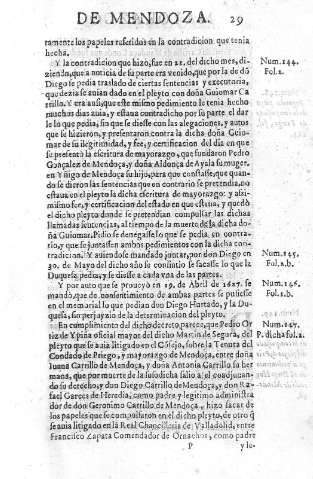 DE MENDOZA. 29
ramente los papeles referidos en la contradicion que tenia
hecha.
Y la contradicion que hizo, fue en 21. del dicho mes, di- Num. 144.
ziendo, que a noticia de su parte era venido, que por la de dō Fol. 2.
Diego se pedia traslado de ciertas sentencias y executoria,
que dezia se auian dado en el pleyto con doña Guiomar Ca
rrillo. Y era assi, que este mismo pedimiento le tenia hecho
muchos dias auia, y estaua contradicho por la parte el dar
le lo que pedia, sin que se diesse con las alegaciones, y autos
que se hizieron, y presentaron contra la dicha doña Guio-
mar de su ilegitimidad, y fee, y certificacion del dia en que
se presentò la escritura de mayorazgo, que fundaron Pedro
Gonçalez de Mendoça, y doña Aldonça de Ayala su muger,
en Yñigo de Mendoça su hijo, para que constasse, que quan-
do se dieron las sentencias que en contrario se pretendia, no
estaua en el pleyto la dicha escritura de mayorazgo: y assi-
mismo fee, y certificacion del estado en que estaua, y quedò
el dicho pleyto donde se pretendian compulsar las dichas
llamadas sentencias, al tiempo de la muerte de la dicha do-
ña Guiomar. Pidio se denegasse lo que se pedia en contra-
rio, y que se juntassen ambos pedimientos con la dicha con-
tradicion. Y auiendose mandado juntar, por don Diego en Num. 145.
30. de Mayo del dicho año se consintio se sacasse lo que la Fol. 2. b.
Duquesa pedia, y se diesse a cada vna de las partes.
Y por auto que se proueyò en 19. de Abril de 1627. se Num. 146.
mandò, que de consentimiento de ambas partes se pusiesse Fol. 2. b.
en el memorial lo que pedian don Diego Hurtado, y la Du-
quesa, sin perjuyzio de la determinacion del pleyto.
En cumplimiento del dicho decreto parece, que Pedro Or Num. 147.
tiz de Ypiña oficial mayor del dicho Martin de Segura, del P. dicha fol. 2.
pleyto que se auia litigado en el Cōsejo, sobre la Tenuta del
Condado de Priego, y mayorazgo de Mendoça, entre doña
Iuana Carrillo de Mendoça, y doña Antonia Carrillo su her
mana, que por muerte de la susodicha salio a el coadjunuan-
do su derecho, y don Diego Carrillo de Mendoça, y don Ra-
fael Garces de Heredia, como padre y legitimo administra
dor de don Geronimo Carrillo de Mendoça, hizo sacar de
los papeles que se compulsaron en el dicho pleyto, de otro q̄
se auia litigado en la Real Chancilleria de Valladolid, entre
Francisco Zapata Comendador de Ornachos, como padre
P y le-